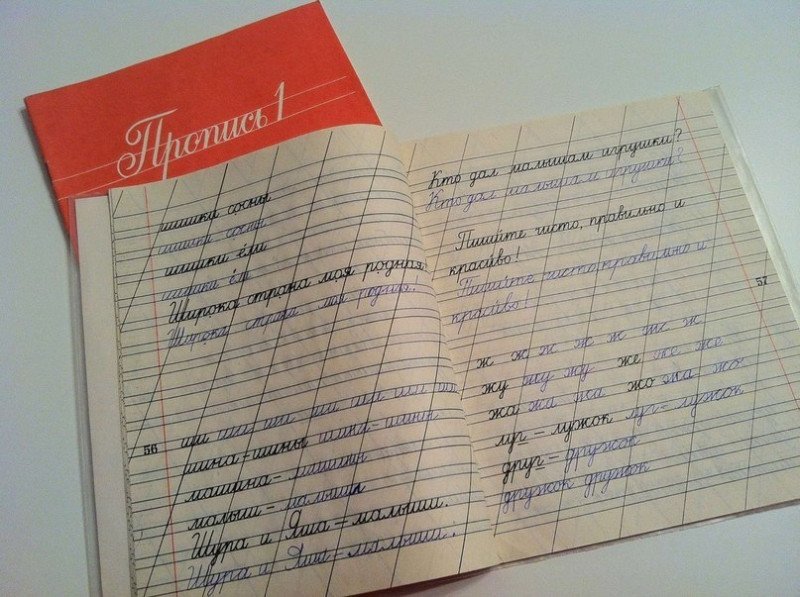 Пропись 1
шишки сосны
шишки сосны
шишки ёли
шишки ёли
Широка страна моя родная.
Широка страна моя родная.
ши ши ши ши ши ши ши
56
шина - шины шина - шины
машина - машины
малыш - малыши
Шура и Яша - малыши.
Шура и Яша - малыши.
Кто дал малышам игрушки?
Кто дал малышам игрушки?
Пишите чисто, правильно и
красиво!
Пишите чисто, правильно и
красиво!
57
ж ж ж ж ж ж ж
жу жу жу же же же
жа жа жа жо жо жо
луг - лужок луг - лужок
друг - дружок
дружок дружок